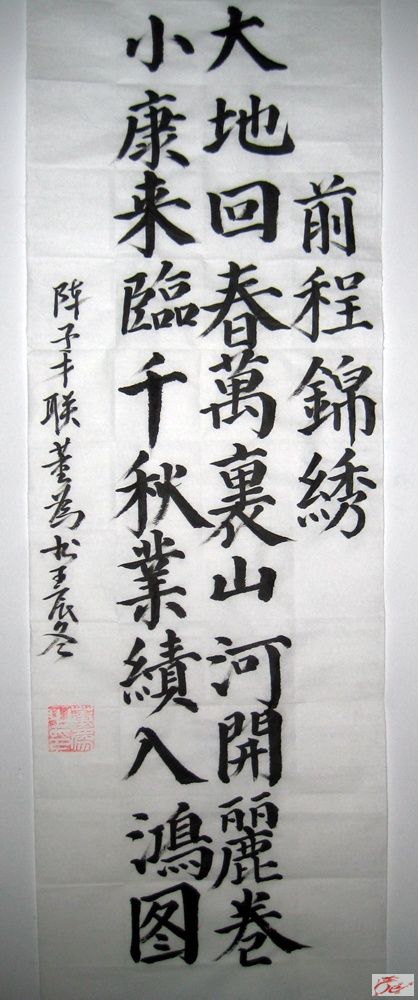 前程錦綉
大地回春萬裏山河開麗卷
小康来臨千秋業績入鴻图
阵子才联董為书壬辰冬